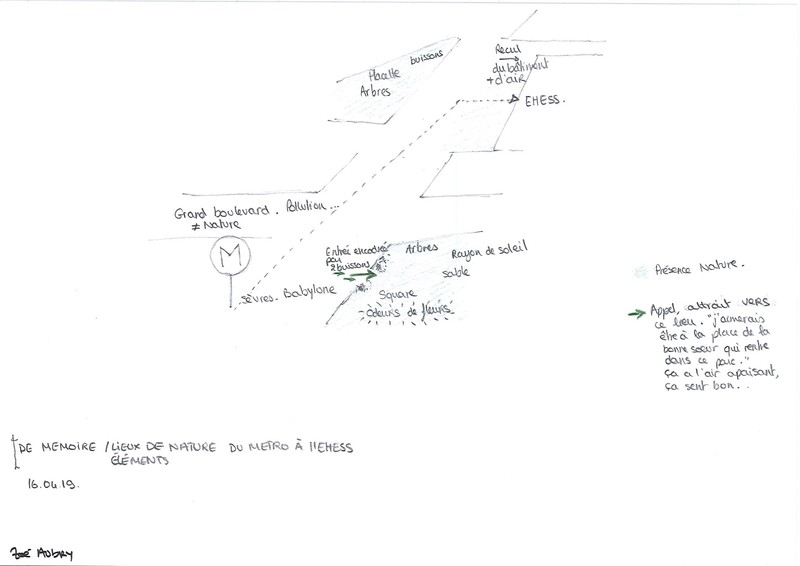 buissons
Placette
Arbres
Recul
du bâtiment
+ d'air
EHESS.
Grand boulevard. Pollution...
≠ Nature
M
Sèvres-Babylone
Entrée encadrée
par
2 buissons
Arbres
Rayon de soleil
sable
Square
odeurs de fleurs
Présence Nature.
Appel, attrait vers
ce lieu. "j'aimerais
être à la place de la
bonne soeur qui rentre
dans ce parc."
ça a l'air apaisant,
ça sent bon...
DE MEMOIRE / LIEUX DE NATURE DU METRO À l'EHESS
ÉLÉMENTS
16.04.19.
Zoé AUBRY